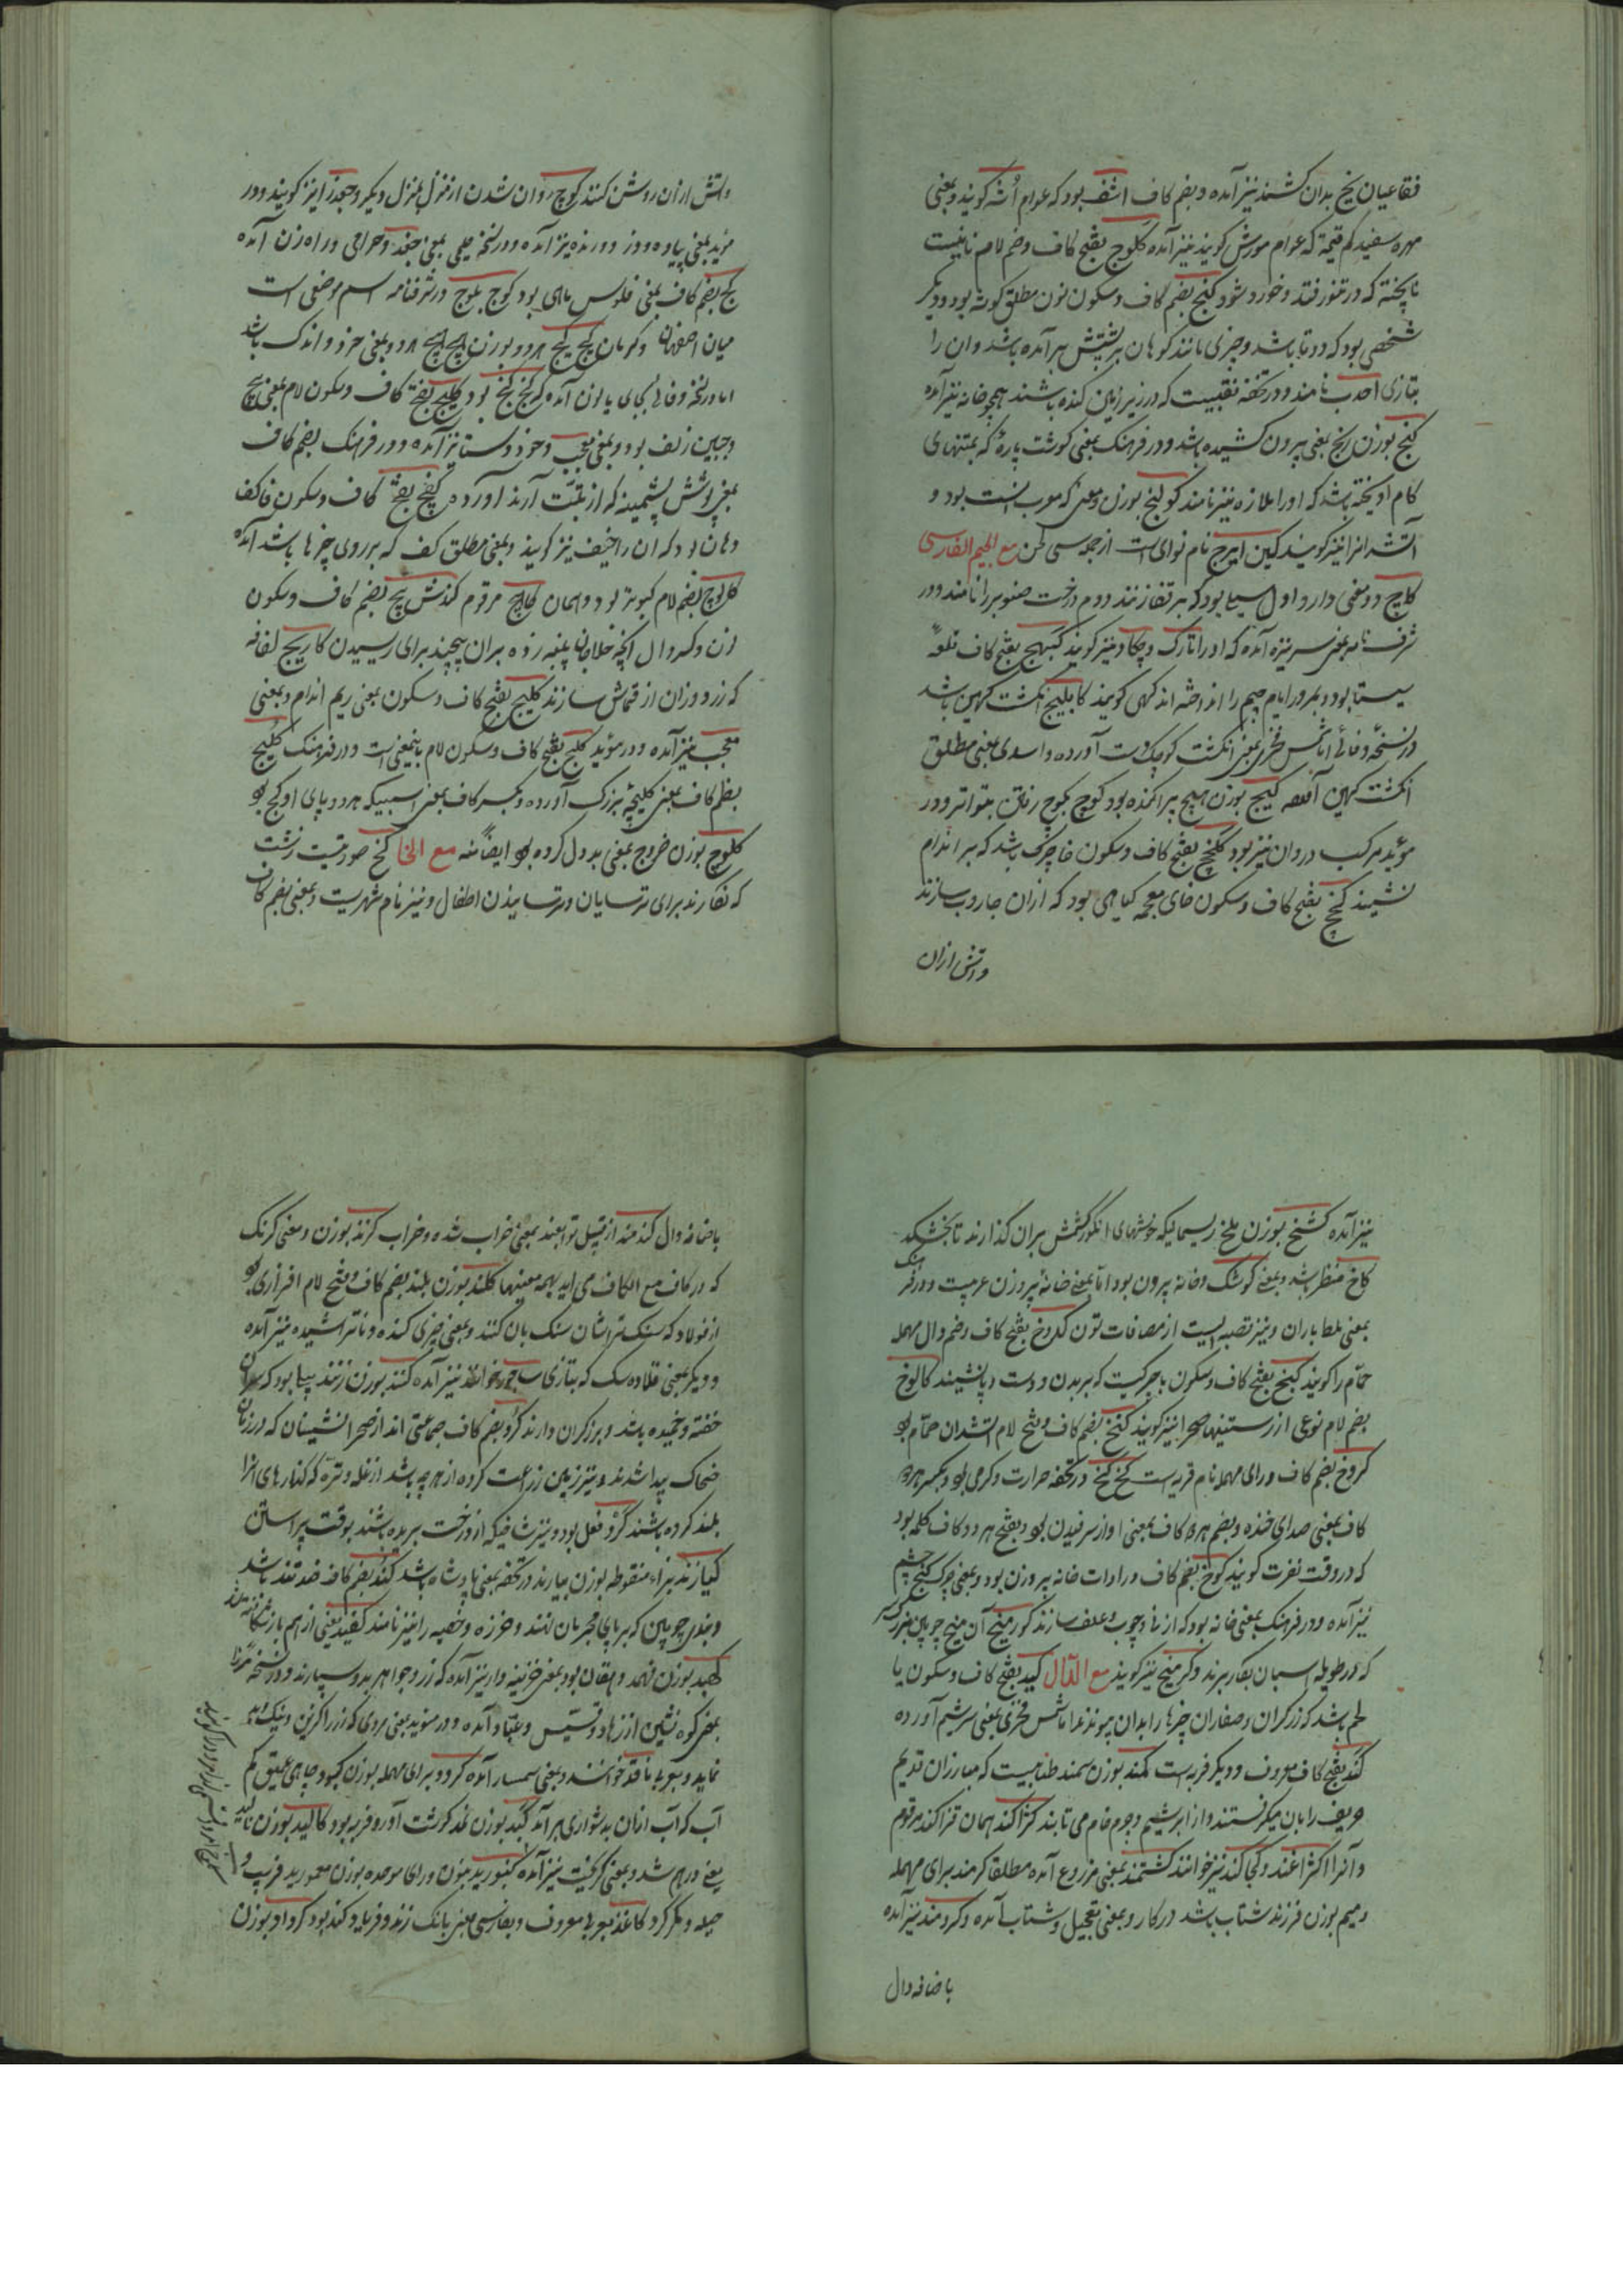 فقاعیان یخ بدان کشند نیز آمده و بضم کاف اشف بود که عوام اُشه گویند و بمعنی
مهره سفید کم قیمة که عوام مورش گویند نیز آمده کلوج بفتح کاف و ضم لام نانیست
ناپخته که در تنور فتد و خورد شود کنج بضم کاف و سکون نون مطلق گوشه بود و دیگر
شخصی بود که دوتا باشد و چیزی مانند کوهان بر پشتش برآمده باشد و آن را
بتازی احدب نامند و در تحفه نقبیست که در زیر زمین کنده باشند همچو خانه نیز آمده
کنج بوزن رنج بمعنی بیرون کشیده باشد و در فرهنک بمعنی کوشت پاره که بمنتهای
کام آویخته باشد که او را ملازه نیز نامند کولنج بوزن و معنی که معرب آنست بود و
آتشدانرا نیز گویند کین ایرج نام نوای است از جمله سی لحن مع الجیم الفارسی
کاج دو معنی دارد اول سیلی بود که بر قفا زنند دوم درخت صنوبر را نامند و در
شرفنامه بمعنی سر نیزه آمده که او را تارک و چکاد نیز گویند کبیج بفتح کاف قلعهٔ
سیستان بود و بمرور ایام جیم را انداخته اند کهی گویند کابلیج انکشت کهین باشد
در نسخهٔ وفائی اما شمس فخری بمعنی انکشت کوچک دست آورده و اسدی بمعنی مطلق
انکشت کهین آمده کیج بوزن هیچ پراکنده بود کوچ بکوچ رفتن متواتر و در
مؤید مرکب در وان نیز بود کلخچ بفتح کاف و سکون خا چرک باشد که بر اندام
نشیند کنخچ بفتح کاف و سکون خای معجمه کیاهی بود که از آن جاروب سازند
و آتش ازان
و آتش ازان روشن کنند کوچ روان شدن از منزل بمنزل دیکر و جغد را نیز گویند و در
مؤید بمعنی پیاده و دزد و رنده نیز آمده و در نسخه حلیمی بمعنی جغد و حرامی و راه زن آمده
کج بضم کاف بمعنی فلوس ماهی بود کوچ بلوچ در شرفنامه اسم موضعی است
میان اصفهان و کرمان کیج کیج هر دو بوزن هیچ هیچ هر دو بمعنی خرد و اندک باشد
اما در نسخه وفائی بجای یا نون آمده که کنج کنج بود کلیچ بفتح کاف و سکون لام بمعنی پیچ
و چین زلف بود و بمعنی معجب و خود ستا نیز آمده و در فرهنک بضم کاف
بمعنی پوشش پشمینه که از تبّت آرند آورده کفچ بفتح کاف و سکون فا کف
دهان بود که آن را خیف نیز گویند و بمعنی مطلق کف که بر روی چیزها باشد آمده
کل لوچ بضم لام کبوتر بود و همان کماج مرقوم کندش پیچ بضم کاف و سکون
نون و کسر دال آنچه حلاجان پنبه زده بران پیچند برای ریسیدن کاریج لفافه
که زردوزان از قماش سازند کلیچ بفتح کاف و سکون بمعنی ریم اندام و بمعنی
معجب نیز آمده و در مؤید کلیچ بفتح کاف و سکون لام باینمعنی است و در فرهنک کلیچ
بضم کاف بمعنی کلیچهٔ بزرک آورده و بکسر کاف بمعنی اسبیکه هر دو پای او کج بود
کلوچ بوزن خروج بمعنی بدول کرده بود ایضاً منه مع الخا کخ صورتیست زشت
که نکارند برای ترسایان و ترسانیدن اطفال و نیز نام شهریست و بمعنی بضم کاف
نیز آمده کشخ بوزن ملخ ریسمانیکه خوشهای انکور کشمش بران گذارند تا بخشکد
کاخ منظر باشد و بمعنی کوشک و خانه بیرون بود اما بمعنی خانهٔ بیرون عربیست و در فرهنک
بمعنی مطلق باران و نیز قصبه ایست از مضافات تون کدوخ بفتح کاف و ضم دال مهمله
حمام را گویند کنخ بفتح کاف و سکون با چرکیست که بر بدن و دست و پا نشیند کالوخ
بضم لام نوعی از رستنیها صحرا نیز گویند کلخن بضم کاف و فتح لام آتشدان حمّام بود
کروخ بضم کاف و رای مهمله نام قریه ست کخ کخ در تحفه حرارت و گرمی بود و بکسر هردو
کاف بمعنی صدای خنده و بضم هردو کاف بمعنی آواز سرفیدن بود و بفتح هر دو کاف کلمه بود
که در وقت نفرت گویند کوخ بضم کاف و را و ات خانه بیرون بود و بمعنی چرک کنج چشم
نیز آمده و در فرهنک بمعنی خانه بود که از نی و چوب و علف سازند کور میخ آن میخ چوبین بزرک
که در طویله اسبان بکار برند و کر میخ نیز گویند مع الدال کبد بفتح کاف و سکون با
لحم باشد که زرکران و صفاران چیزها را بدان پیوندند اما شمس فخری بمعنی سرشیم آورده
کند بفتح کاف معروف و دیکر قریه است کمند بوزن سمند طنابیست که مبارزان قدیم
حریف را بان میگرفتند و از ابریشیم و چرم خام می تابند کژاکند همان قزاکند مرقوم
و آنرا اکژاغند و کجاکند نیز خوانند کشتمند بمعنی مزروع آمده مطلقا کرمند برای مهمله
و میم بوزن فرزند شتاب باشد در کار و بمعنی تعجیل و شتاب آمده و کردمند نیز آمده
باضافه دال
باضافه دال کندمند از قبیل توابعند بمعنی خراب شده و خراب کرنذ بوزن و معنی کرنک
که در کاف مع الکاف می آید بهمه معنیها کلند بوزن بلند بضم کاف و فتح لام افزاری بود
از فولاد که سنک تراشان سنک بان کنند و بمعنی چیزی کنده و ناتراشیده نیز آمده
و دیکر بمعنی قلاده سک که بتازی ساجور خوانند نیز آمده کنند بوزن زنند بیلی بود که سر آن
خفته و خمیده باشد و برزکران دارند کرد بضم کاف جماعتی اند از صحرانشینان که در زمان
ضحاک پیدا شدند و نیز زمین زراعت کرده از هرچه باشد از غله و تره که کنارهای آنرا
بلند کرده باشند کرد فعل بود و نیز شاخیکه از درخت بریده باشند بوقت پیراستن
کیازند بزاء منقوطه بوزن بیارند در تحفه بمعنی پادشاه باشد کند بضم کاف ضد تند باشد
و بند چوبین که بر پای مجرمان نهند و خرزه و خصیه را نیز نامند کفید یعنی از هم باز شکافته شد
کهبد بوزن فهمد دهقان بود بمعنی خزینه دار نیز آمده که زر و جواهر بدو سپارند و در نسخه میرزا
بمعنی کوه نشین از زهاد و قسّیس و عبّاد آمده و در مؤید بمعنی مردی که زر را کزین و نیک
نماید و بعربی ناقد خوانند و بمعنی سمسار آمده کرد و برای مهمله بوزن کبود چاهی عمیق کم
آب که آب ازان بدشواری برآید کبد بوزن غد کوشت آور و فربه بود کالید بوزن نالید
یعنی درهم شد و بمعنی گریخت نیز آمده کنبورید بنون و رای موحده بوزن معمورید فریب و
حیله و مکر کرد کاغذ بعربی معروف و بفارسی بمعنی بانک زند و فریاد کند بود کرداد بوزن